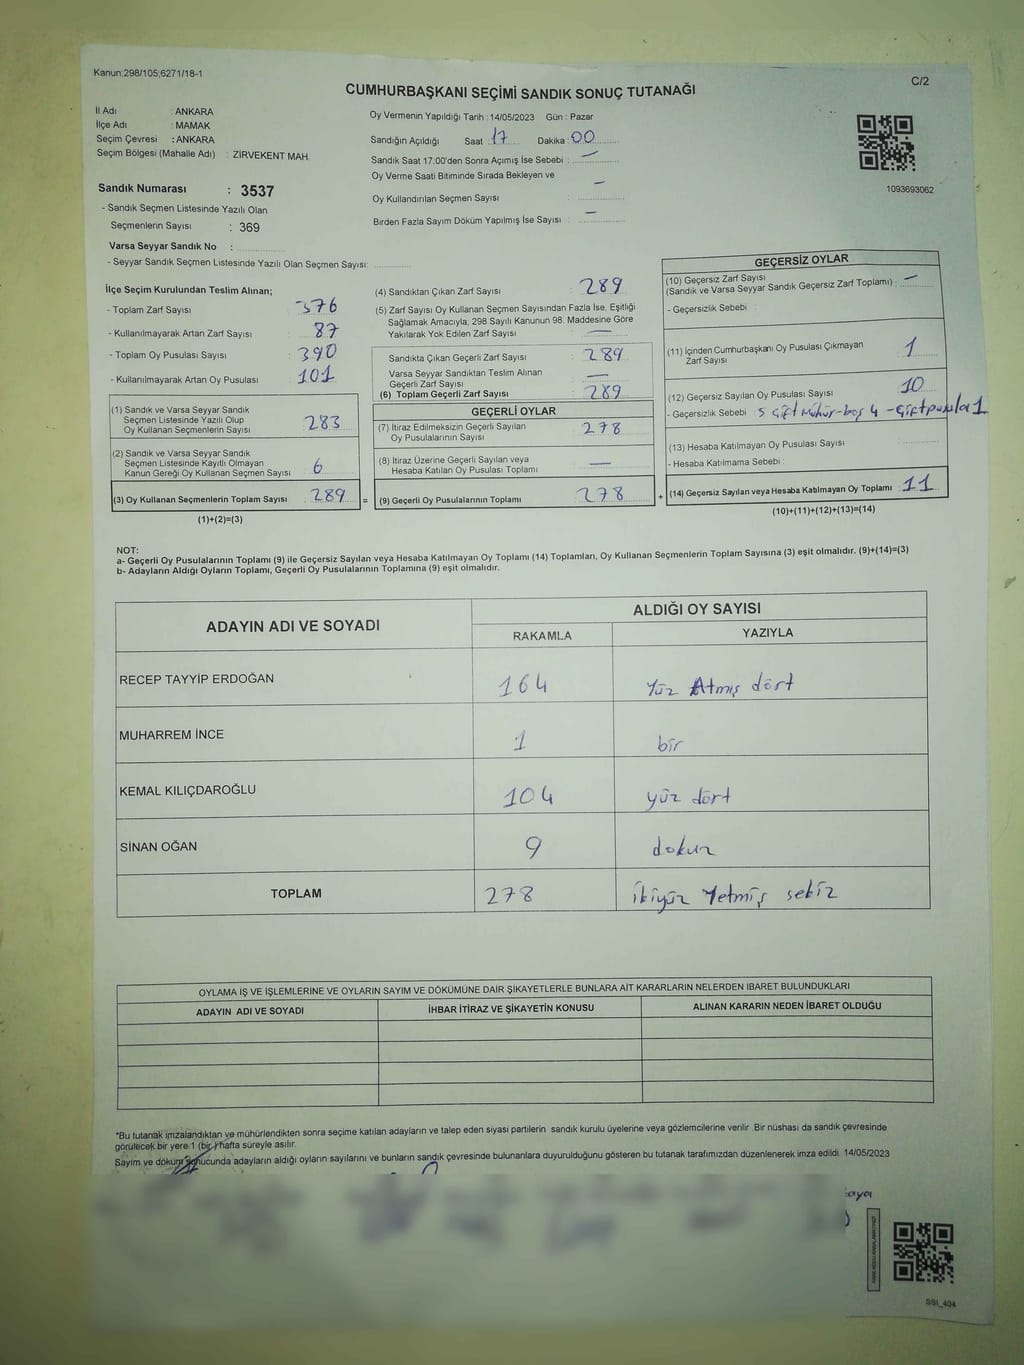 Kanun;298/105;6271/18-1
C/2
CUMHURBAŞKANI SEÇİMİ SANDIK SONUÇ TUTANAĞI
İl Adı : ANKARA
İlçe Adı : MAMAK
Seçim Çevresi : ANKARA
Seçim Bölgesi (Mahalle Adı) : ZİRVEKENT MAH.
Sandık Numarası : 3537
- Sandık Seçmen Listesinde Yazılı Olan
Seçmenlerin Sayısı : 369
Varsa Seyyar Sandık No :
- Seyyar Sandık Seçmen Listesinde Yazılı Olan Seçmen Sayısı:
Oy Vermenin Yapıldığı Tarih : 14/05/2023 Gün : Pazar
Sandığın Açıldığı Saat : 17 Dakika : 00
Sandık Saat 17:00'den Sonra Açımış İse Sebebi : —
Oy Verme Saati Bitiminde Sırada Bekleyen ve
Oy Kullandırılan Seçmen Sayısı : —
Birden Fazla Sayım Döküm Yapılmış İse Sayısı : —
1093693062
İlçe Seçim Kurulundan Teslim Alınan;
- Toplam Zarf Sayısı : 376
- Kullanılmayarak Artan Zarf Sayısı : 87
- Toplam Oy Pusulası Sayısı : 390
- Kullanılmayarak Artan Oy Pusulası : 101
(1) Sandık ve Varsa Seyyar Sandık
Seçmen Listesinde Yazılı Olup
Oy Kullanan Seçmenlerin Sayısı : 283
(2) Sandık ve Varsa Seyyar Sandık
Seçmen Listesinde Kayıtlı Olmayan
Kanun Gereği Oy Kullanan Seçmen Sayısı : 6
(3) Oy Kullanan Seçmenlerin Toplam Sayısı : 289 =
(1)+(2)=(3)
(4) Sandıktan Çıkan Zarf Sayısı : 289
(5) Zarf Sayısı Oy Kullanan Seçmen Sayısından Fazla İse, Eşitliği
Sağlamak Amacıyla, 298 Sayılı Kanunun 98. Maddesine Göre
Yakılarak Yok Edilen Zarf Sayısı : —
Sandıkta Çıkan Geçerli Zarf Sayısı : 289
Varsa Seyyar Sandıktan Teslim Alınan
Geçerli Zarf Sayısı : —
(6) Toplam Geçerli Zarf Sayısı : 289
GEÇERLİ OYLAR
(7) İtiraz Edilmeksizin Geçerli Sayılan
Oy Pusulalarının Sayısı : 278
(8) İtiraz Üzerine Geçerli Sayılan veya
Hesaba Katılan Oy Pusulası Toplamı : —
(9) Geçerli Oy Pusulalarının Toplamı : 278 +
GEÇERSİZ OYLAR
(10) Geçersiz Zarf Sayısı
(Sandık ve Varsa Seyyar Sandık Geçersiz Zarf Toplamı) : —
- Geçersizlik Sebebi :
(11) İçinden Cumhurbaşkanı Oy Pusulası Çıkmayan
Zarf Sayısı : 1
(12) Geçersiz Sayılan Oy Pusulası Sayısı : 10
- Geçersizlik Sebebi : 5 Çift Mühür-boş 4 -Çift pusula 1
(13) Hesaba Katılmayan Oy Pusulası Sayısı :
- Hesaba Katılmama Sebebi :
(14) Geçersiz Sayılan veya Hesaba Katılmayan Oy Toplamı : 11
(10)+(11)+(12)+(13)=(14)
NOT:
a- Geçerli Oy Pusulalarının Toplamı (9) ile Geçersiz Sayılan veya Hesaba Katılmayan Oy Toplamı (14) Toplamları, Oy Kullanan Seçmenlerin Toplam Sayısına (3) eşit olmalıdır. (9)+(14)=(3)
b- Adayların Aldığı Oyların Toplamı, Geçerli Oy Pusulalarının Toplamına (9) eşit olmalıdır.
ADAYIN ADI VE SOYADI
ALDIĞI OY SAYISI
RAKAMLA YAZIYLA
RECEP TAYYİP ERDOĞAN 164 Yüz Atmış dört
MUHARREM İNCE 1 bir
KEMAL KILIÇDAROĞLU 104 yüz dört
SİNAN OĞAN 9 dokuz
TOPLAM 278 ikiyüz Yetmiş sekiz
OYLAMA İŞ VE İŞLEMLERİNE VE OYLARIN SAYIM VE DÖKÜMÜNE DAİR ŞİKAYETLERLE BUNLARA AİT KARARLARIN NELERDEN İBARET BULUNDUKLARI
ADAYIN ADI VE SOYADI İHBAR İTİRAZ VE ŞİKAYETİN KONUSU ALINAN KARARIN NEDEN İBARET OLDUĞU
*Bu tutanak imzalandıktan ve mühürlendikten sonra seçime katılan adayların ve talep eden siyasi partilerin sandık kurulu üyelerine veya gözlemcilerine verilir. Bir nüshası da sandık çevresinde
görülecek bir yere 1 (bir) hafta süreyle asılır.
Sayım ve döküm sonucunda adayların aldığı oyların sayılarını ve bunların sandık çevresinde bulunanlara duyurulduğunu gösteren bu tutanak tarafımızdan düzenlenerek imza edildi. 14/05/2023
SSI_404